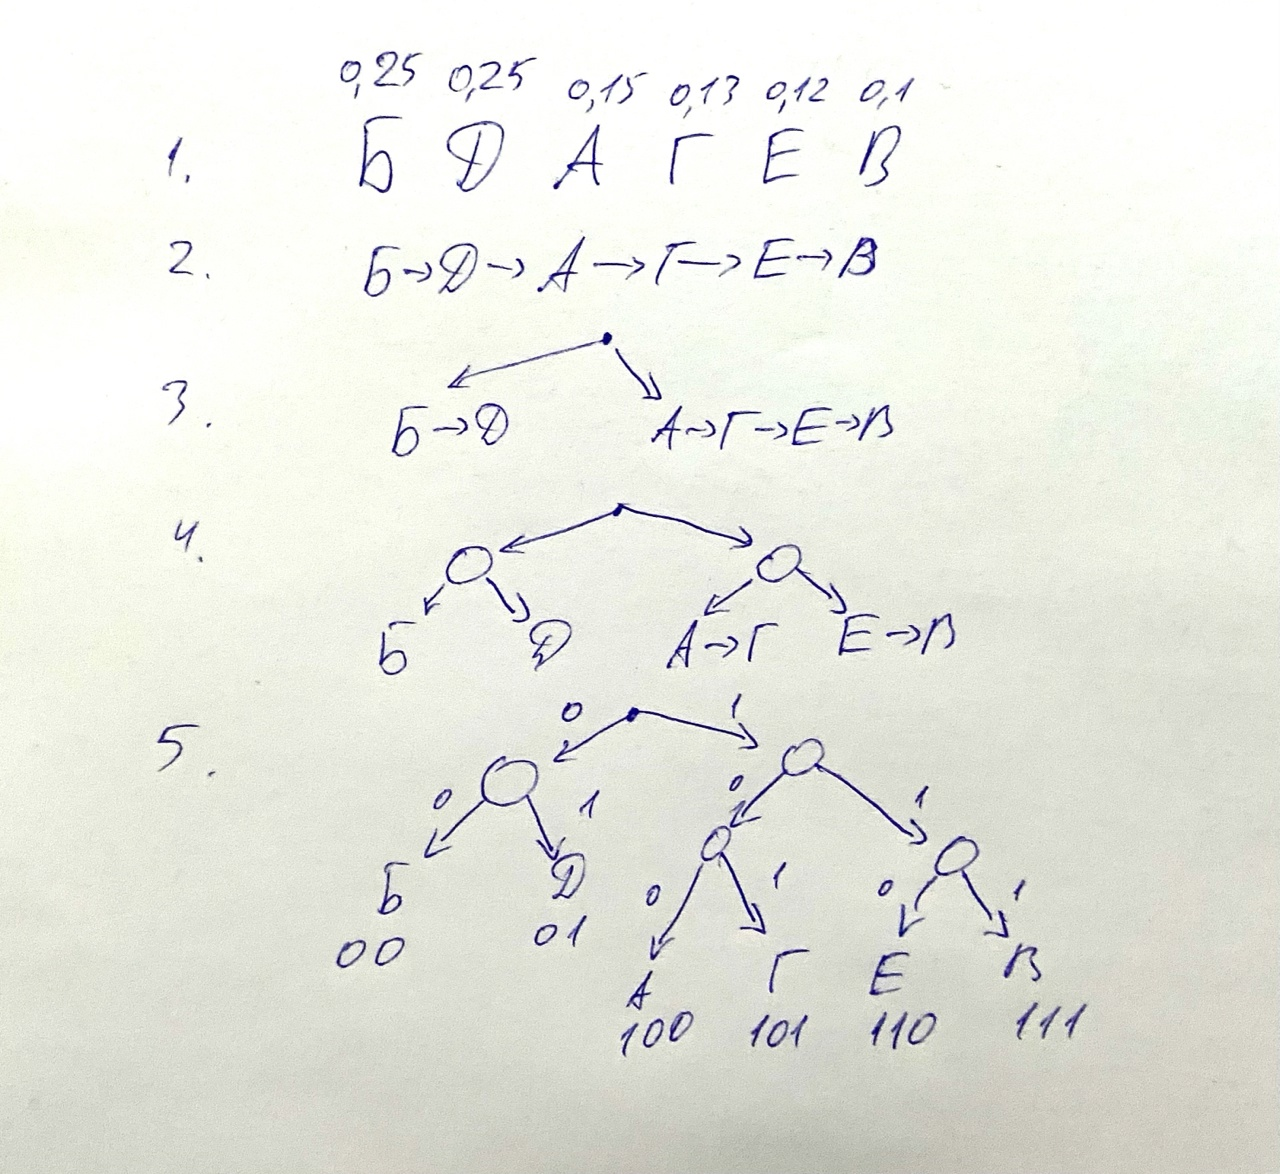 0,25 0,25 0,15 0,13 0,12 0,1
1. Б Д А Г Е В
2. Б→Д→А→Г→Е→В
3. Б→Д А→Г→Е→В
4.
Б Д А→Г Е→В
0 1
5.
0 1 0 1
Б Д 0 1 0 1
00 01
А Г Е В
100 101 110 111